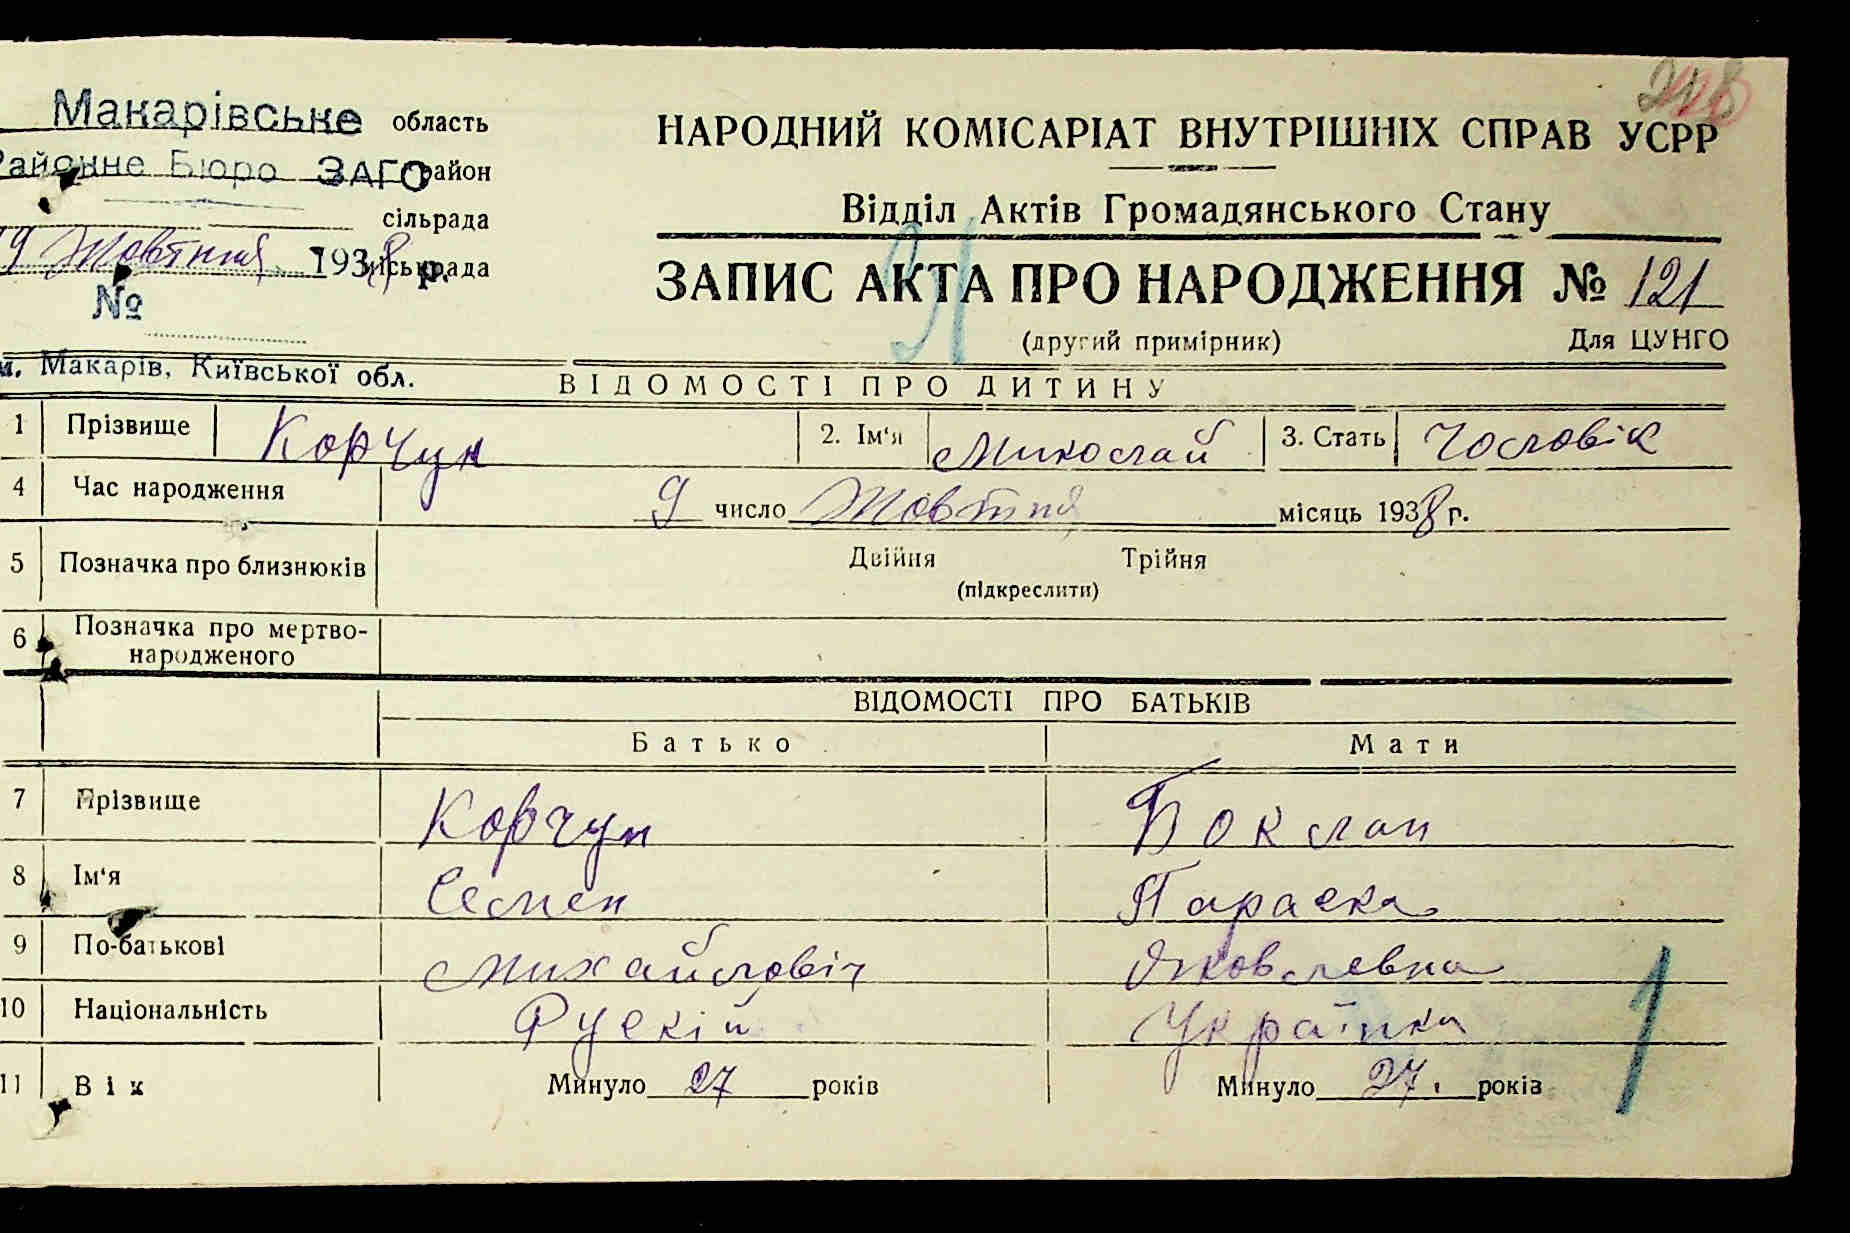 Макарівське область
Районне Бюро ЗАГС район
сільрада
19 Жовтня 1938 р. міськрада
№
м. Макарів, Київської обл.
НАРОДНИЙ КОМІСАРІАТ ВНУТРІШНІХ СПРАВ УСРР
Відділ Актів Громадянського Стану
ЗАПИС АКТА ПРО НАРОДЖЕННЯ № 121
(другий примірник) Для ЦУНГО
ВІДОМОСТІ ПРО ДИТИНУ
1 Прізвище Корчун 2. Ім'я Миколай 3. Стать Чоловік
4 Час народження 9 число Жовтня місяць 1938 г.
5 Позначка про близнюків Двійня Трійня
(підкреслити)
6 Позначка про мертво-
народженого
ВІДОМОСТІ ПРО БАТЬКІВ
Батько Мати
7 Прізвище Корчун Боклан
8 Ім'я Семен Параска
9 По-батькові Михайловіч Яковлевна
10 Національність Рускій Українка
11 Вік Минуло 27 років Минуло 27. років